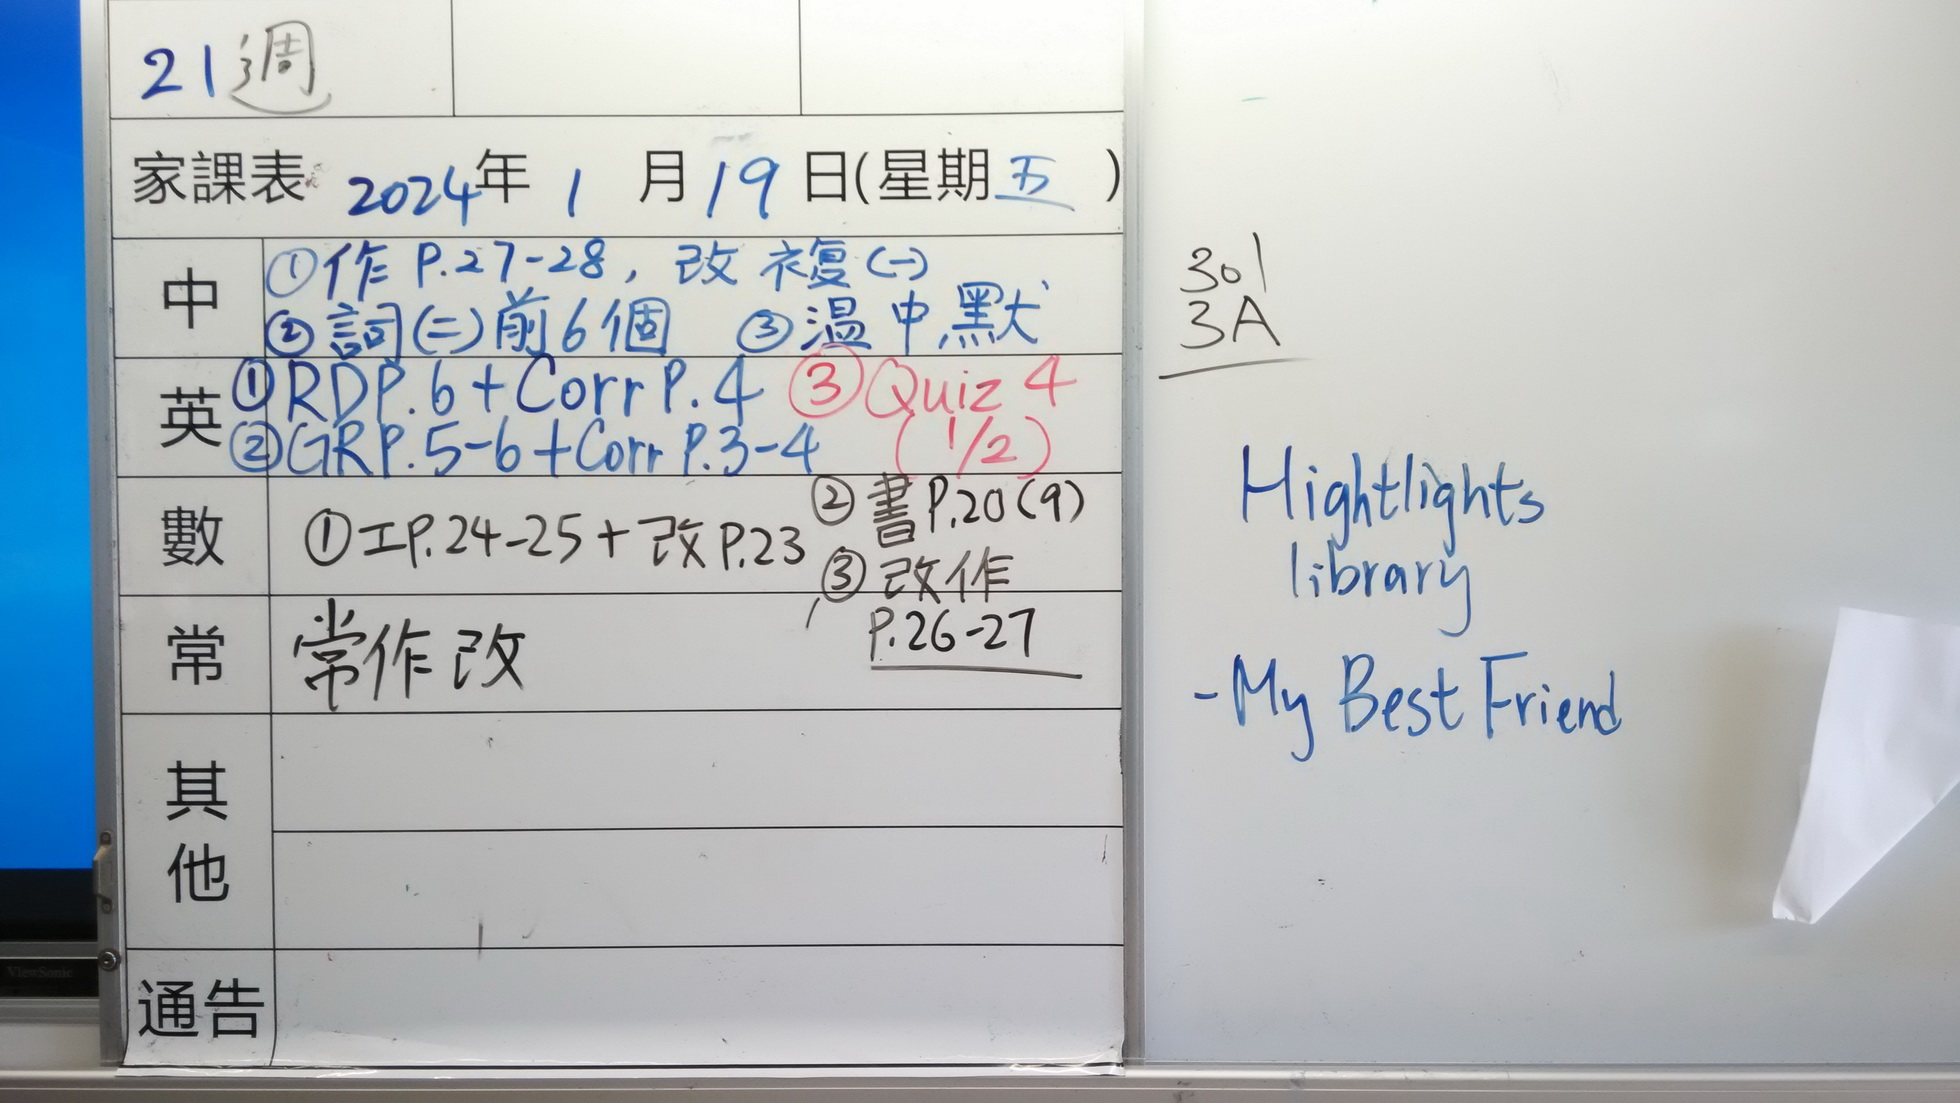 21週
家課表 2024年 1 月 19 日(星期五)
中
①作 P.27-28, 改 複(一)
②詞(二)前6個 ③溫中默
英
①RDP.6+Corr P.4 ③Quiz 4
②GRP.5-6+Corr P.3-4 (1/2)
數
①工P.24-25+改P.23 ②書P.20(9)
③改作
P.26-27
常
常作改
其他
通告
301
3A
Hightlights
library
-My Best Friend
ViewSonic